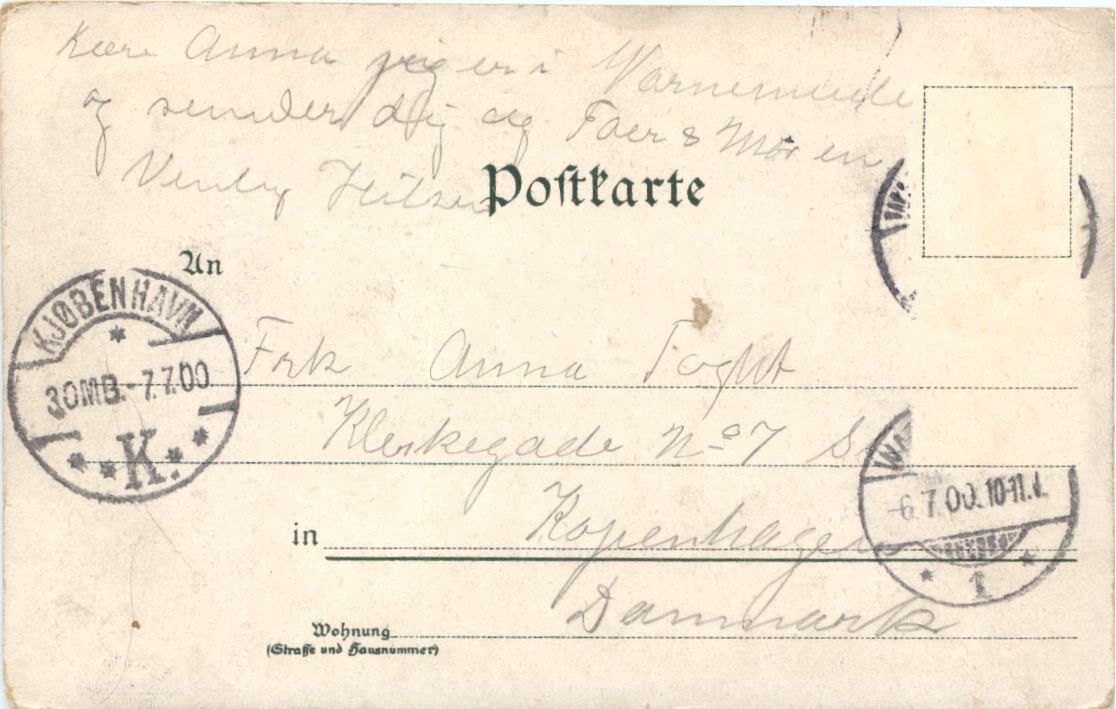 Kære Anna jeg er i Warnemünde
og sender dig og Faer & Mor en
Venlig Hilsen
Postkarte
An
KJØBENHAVN
3.OMB.-7.7.00
K.
Frk Anna Foght
Klerkegade No 7
-6.7.00.10-11.V.
1
in Kopenhagen
Danmark
Wohnung
(Straße und Hausnummer)